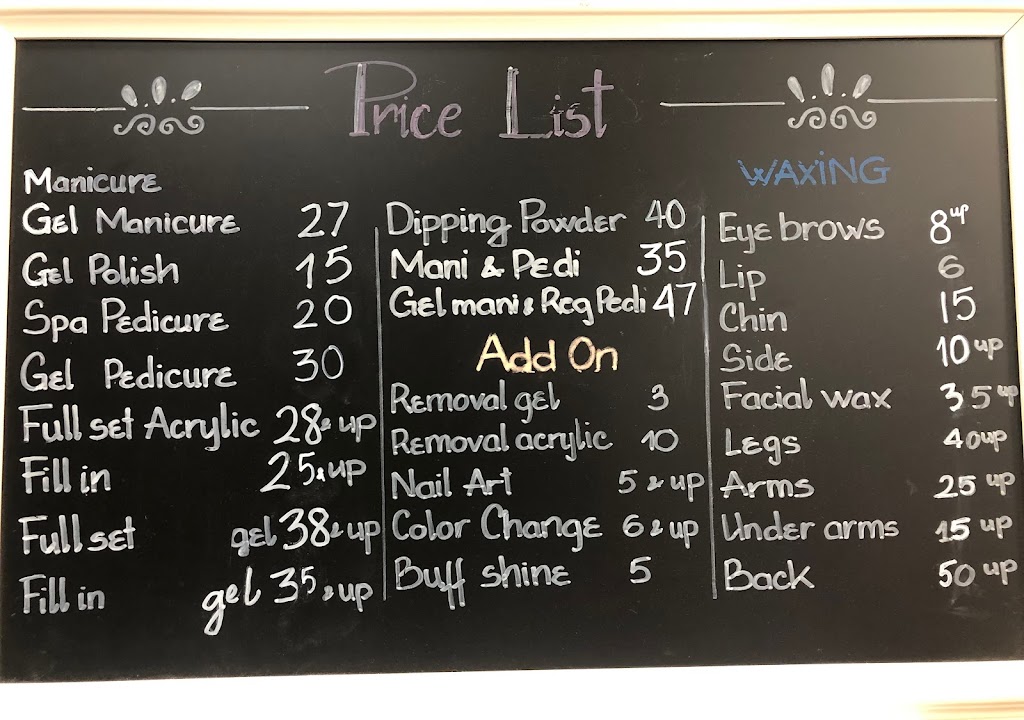 Price List
Manicure
Gel Manicure 27
Gel Polish 15
Spa Pedicure 20
Gel Pedicure 30
Full set Acrylic 28 & up
Fill in 25 & up
Full set gel 38 & up
Fill in gel 35 & up
Dipping Powder 40
Mani & Pedi 35
Gel mani & Reg Pedi 47
Add On
Removal gel 3
Removal acrylic 10
Nail Art 5 & up
Color Change 6 & up
Buff shine 5
WAXING
Eye brows 8 up
Lip 6
Chin 15
Side 10 up
Facial wax 35 up
Legs 40 up
Arms 25 up
Under arms 15 up
Back 50 up